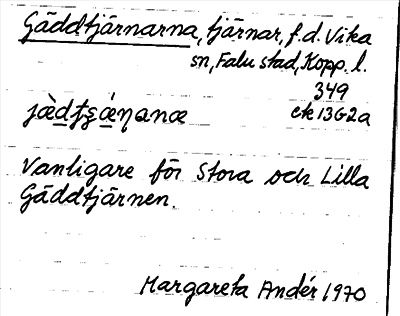 Gäddtjärnarna, tjärnar, f.d. Vika
sn, Falu stad, Kopp. l.
349
ek 13G2a
Vanligare för Stora och Lilla
Gäddtjärnen.
Margareta Andér 1970